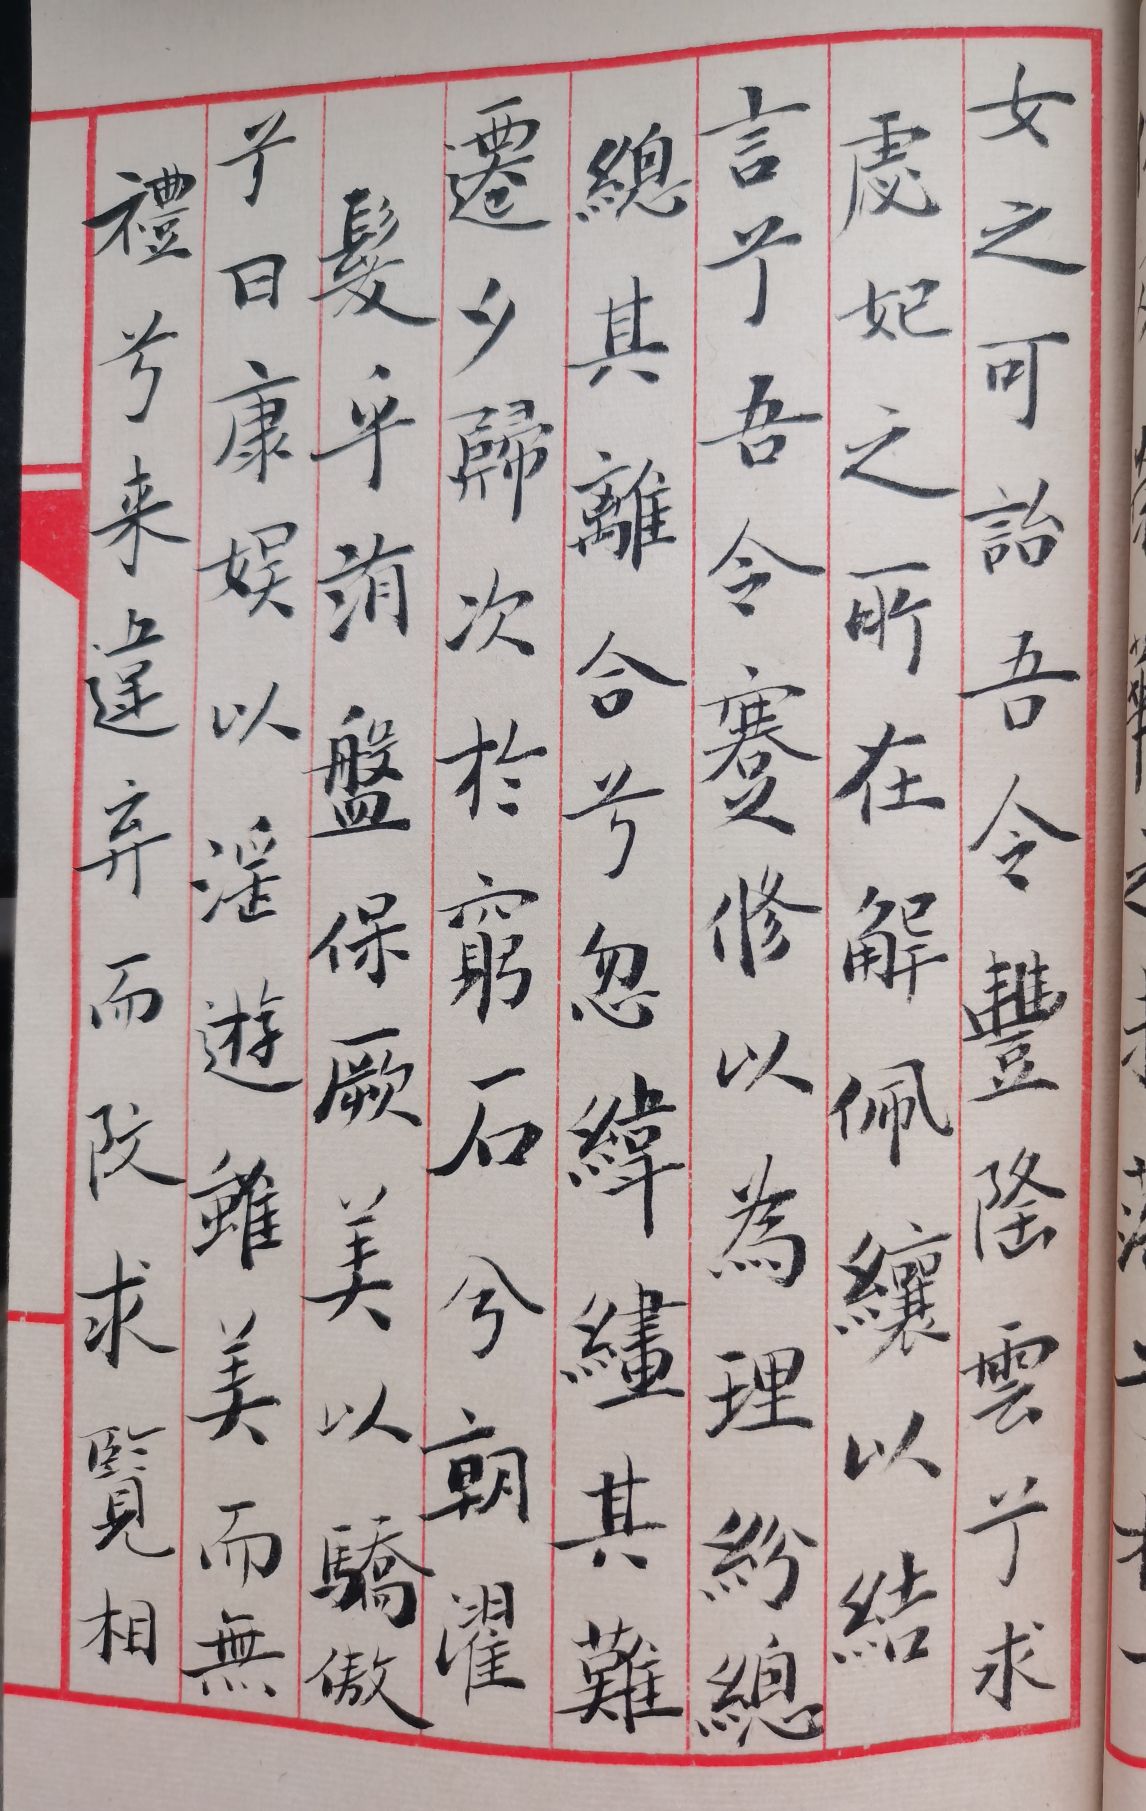 女之可詒吾令豐隆雲兮求
虙妃之所在解佩纕以結
言兮吾令蹇修以為理紛總
總其離合兮忽緯繣其難
遷夕歸次於窮石兮朝濯
髮乎洧盤保厥美以驕傲
兮日康娛以淫遊雖美而無
禮兮来違弃而改求覽相